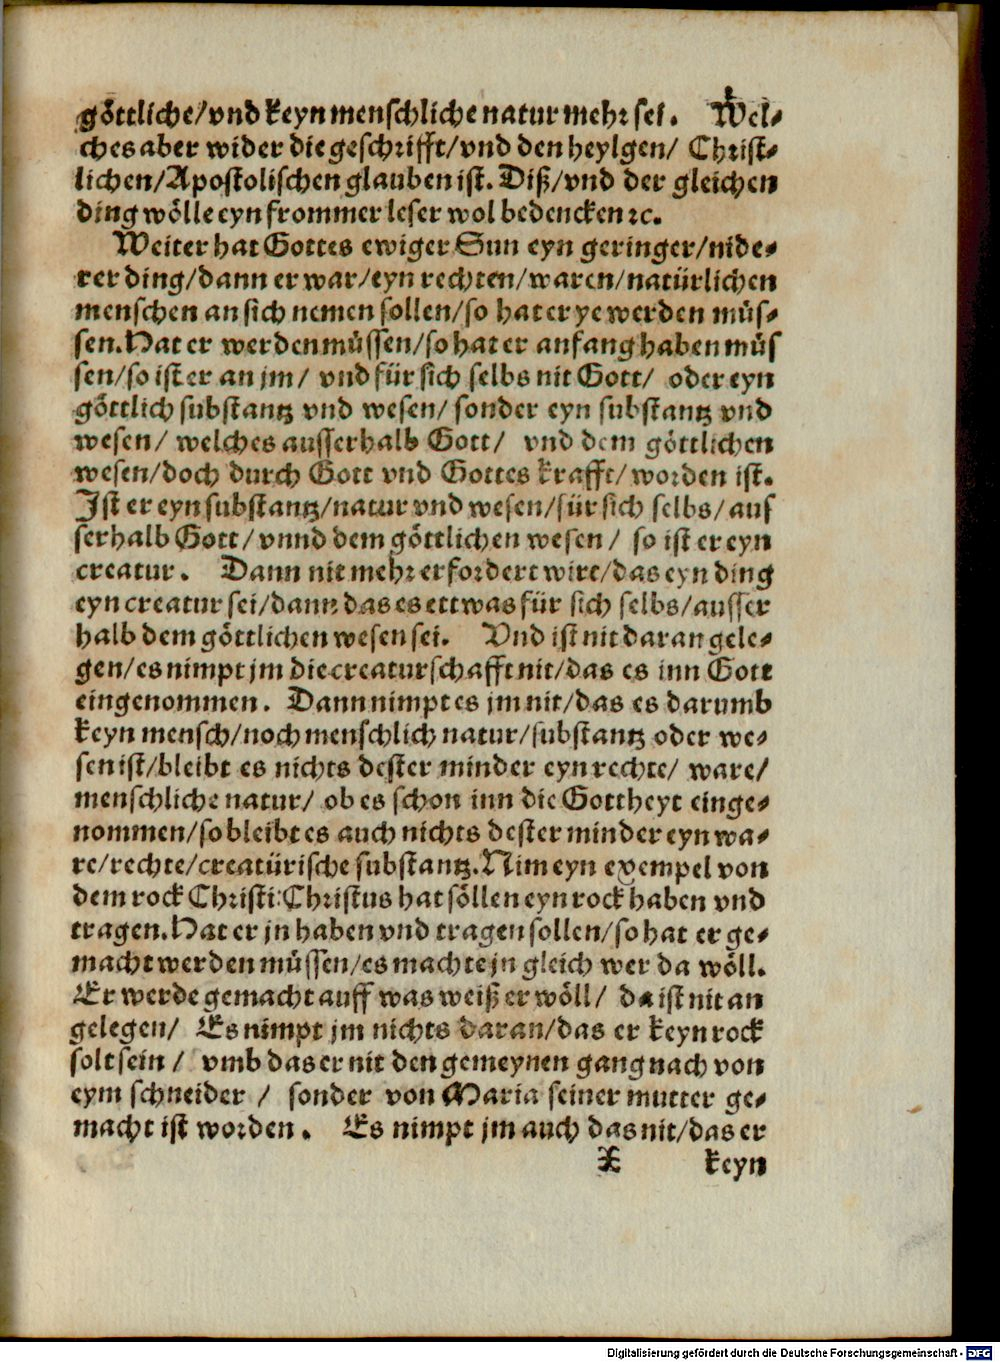 göttliche/vnd keyn menschliche natur mehr sei. Wel-
ches aber wider die geschrifft/vnd den heylgen/ Christ-
lichen/Apostolischen glauben ist. Diß/vnd der gleichen
ding wölle eyn frommer leser wol bedencken ꝛc.
Weiter hat Gottes ewiger Sun eyn geringer/nide-
rer ding/dann er war/eyn rechten/waren/natürlichen
menschen an sich nemen sollen/so hat er ye werden müs-
sen. Hat er werden müssen/so hat er anfang haben müs
sen/so ist er an jm/ vnd für sich selbs nit Gott/ oder eyn
göttlich substantz vnd wesen/ sonder eyn substantz vnd
wesen/ welches ausserhalb Gott/ vnd dem göttlichen
wesen/doch durch Gott vnd Gottes krafft/worden ist.
Ist er eyn substantz/natur vnd wesen/für sich selbs/aus
serhalb Gott/vnnd dem göttlichen wesen/ so ist er eyn
creatur. Dann nit mehr erfordert wirt/das eyn ding
eyn creatur sei/dann das es ettwas für sich selbs/ausser
halb dem göttlichen wesen sei. Vnd ist nit daran gele-
gen/es nimpt jm die creaturschafft nit/das es inn Gott
eingenommen. Dann nimpt es jm nit/das es darumb
keyn mensch/noch menschlich natur/substantz oder we-
sen ist/bleibt es nichts dester minder eyn rechte/ ware/
menschliche natur/ ob es schon inn die Gottheyt einge-
nommen/so bleibt es auch nichts dester minder eyn wa-
re/rechte/creatürische substantz. Nim eyn exempel von
dem rock Christi: Christus hat söllen eyn rock haben vnd
tragen. Hat er jn haben vnd tragen sollen/so hat er ge-
macht werden müssen/es machte jn gleich wer da wöll.
Er werde gemacht auff was weiß er wöll/ da ist nit an
gelegen/ Es nimpt jm nichts daran/das er keyn rock
solt sein/ vmb das er nit den gemeynen gang nach von
eym schneider/ sonder von Maria seiner mutter ge-
macht ist worden. Es nimpt jm auch das nit/das er
X keyn
Digitalisierung gefördert durch die Deutsche Forschungsgemeinschaft - DFG